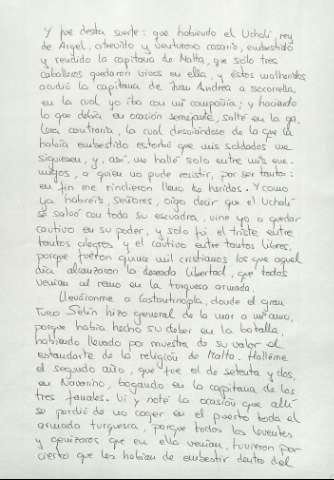 Y fue desta suerte: que habiendo el Uchalí, rey
de Argel, atrevido y venturoso cosario, embestido
y rendido la capitana de Malta, que solo tres
caballeros quedaron vivos en ella, y éstos malheridos,
acudió la capitana de Juan Andrea a socorrella,
en la cual yo iba con mi compañía; y haciendo
lo que debía en ocasión semejante, salté en la ga-
lera contraria, la cual desviándose de la que la
había embestido estorbó que mis soldados me
siguiesen, y, así, me hallé solo entre mis ene-
migos, a quien no pude resistir, por ser tantos:
en fin me rindieron lleno de heridas. Y como
ya habréis, señores, oído decir que el Uchalí
se salvó con toda su escuadra, vine yo a quedar
cautivo en su poder, y solo fui el triste entre
tantos alegres y el cautivo entre tantos libres,
porque fueron quince mil cristianos los que aquel
día alcanzaron la deseada libertad, que todos
venían al remo en la turquesca armada.
Lleváronme a Costantinopla, donde el gran
Turco Selín hizo general de la mar a mi amo,
porque había hecho su deber en la batalla,
habiendo llevado por muestra de su valor el
estandarte de la religión de Malta. Halléme
el segundo año, que fue el de setenta y dos,
en Navarino, bogando en la capitana de los
tres fanales. Vi y noté la ocasión que allí
se perdió de no coger en el puerto toda el
armada turquesca, porque todos los leventes
y genízaros que en ella venían, tuvieron por
cierto que les habían de embestir dentro del